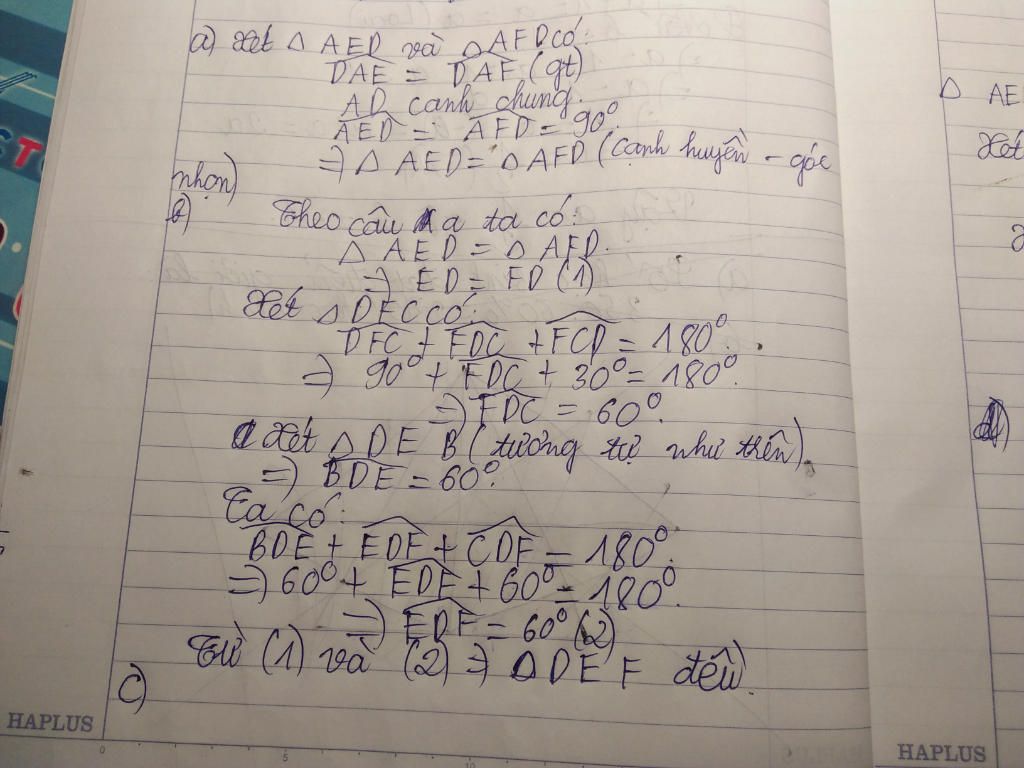 a) Xét △ AED và △ AFD có:
DAE = DAF (gt)
AD cạnh chung.
AED = AFD = 90°
⇒ △ AED = △ AFD (cạnh huyền - góc
nhọn)
b) Theo câu a ta có:
△ AED = △ AFD.
⇒ ED = FD (1)
Xét △ DFC có:
DFC + FDC + FCD = 180°.
⇒ 90° + FDC + 30° = 180°.
⇒ FDC = 60°.
Xét △ DEB (tương tự như trên).
⇒ BDE = 60°.
Ta có:
BDE + EDF + CDF = 180°.
⇒ 60° + EDF + 60° = 180°.
⇒ EDF = 60° (2)
Từ (1) và (2) ⇒ △ DEF đều.
c)
HAPLUS
0 5 10
△ AE
Xét
d)
HAPLUS